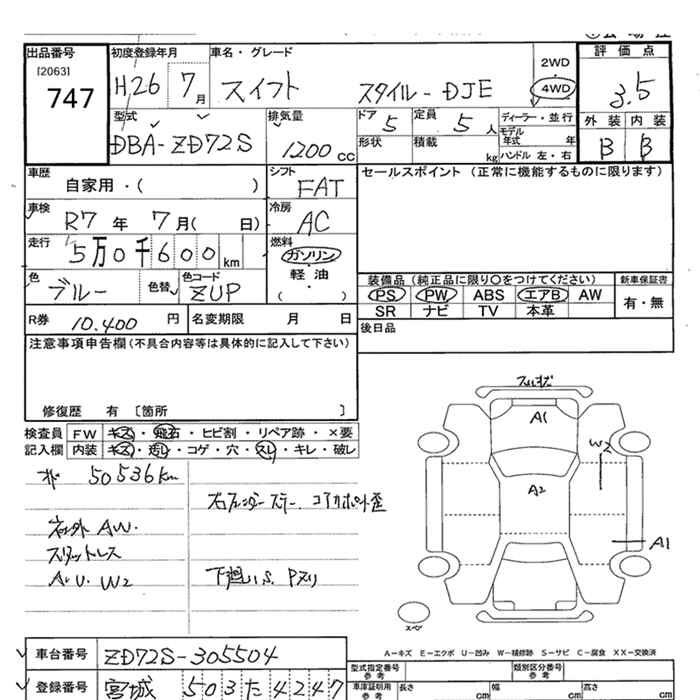 出品番号 初度登録年月 車名・グレード 2WD 評価点
[2063]
747 H.26 7月 スイフト スタイル-DJE 4WD 3.5
型式 排気量 ドア 5 定員 5人 ディーラー・並行 外装 内装
DBA-ZD72S 1200cc 形状 積載 kg モデル年式 年 B B
ハンドル 左・右
車歴 自家用・( ) シフト FAT セールスポイント(正常に機能するものに限ります)
車検 R7年 7月( 日) 冷房 AC
走行 5万0千600km 燃料 ガソリン
軽油
( ・ )
色 ブルー 色替 色コード ZUP
装備品(純正品に限り○をつけてください) 新車保証書
PS PW ABS エアB AW 有・無
SR ナビ TV 本革
R券 10.400円 名変期限 月 日 後日品
注意事項申告欄(不具合内容等は具体的に記入して下さい)
修復歴 有 〔箇所 〕
検査員 FW キズ・飛石・ヒビ割・リペア跡・×要
記入欄 内装 キズ・汚し・コゲ・穴・スレ・キレ・破し
50536km
社外AW.
スタットレス
A.U. W2
右フェンダーステー. コアサポート歪
下廻りS. Pヌリ
A1
W2
A2
A1
スペア
A-キズ E-エクボ U-凹み W-補修跡 S-サビ C-腐食 XX-交換済
車台番号 ZD72S-305504
型式指定番号 参考 類別区分番号 参考
登録番号 宮城 503 た 4247
車庫証明用 参考 長さ cm 幅 cm 高さ cm